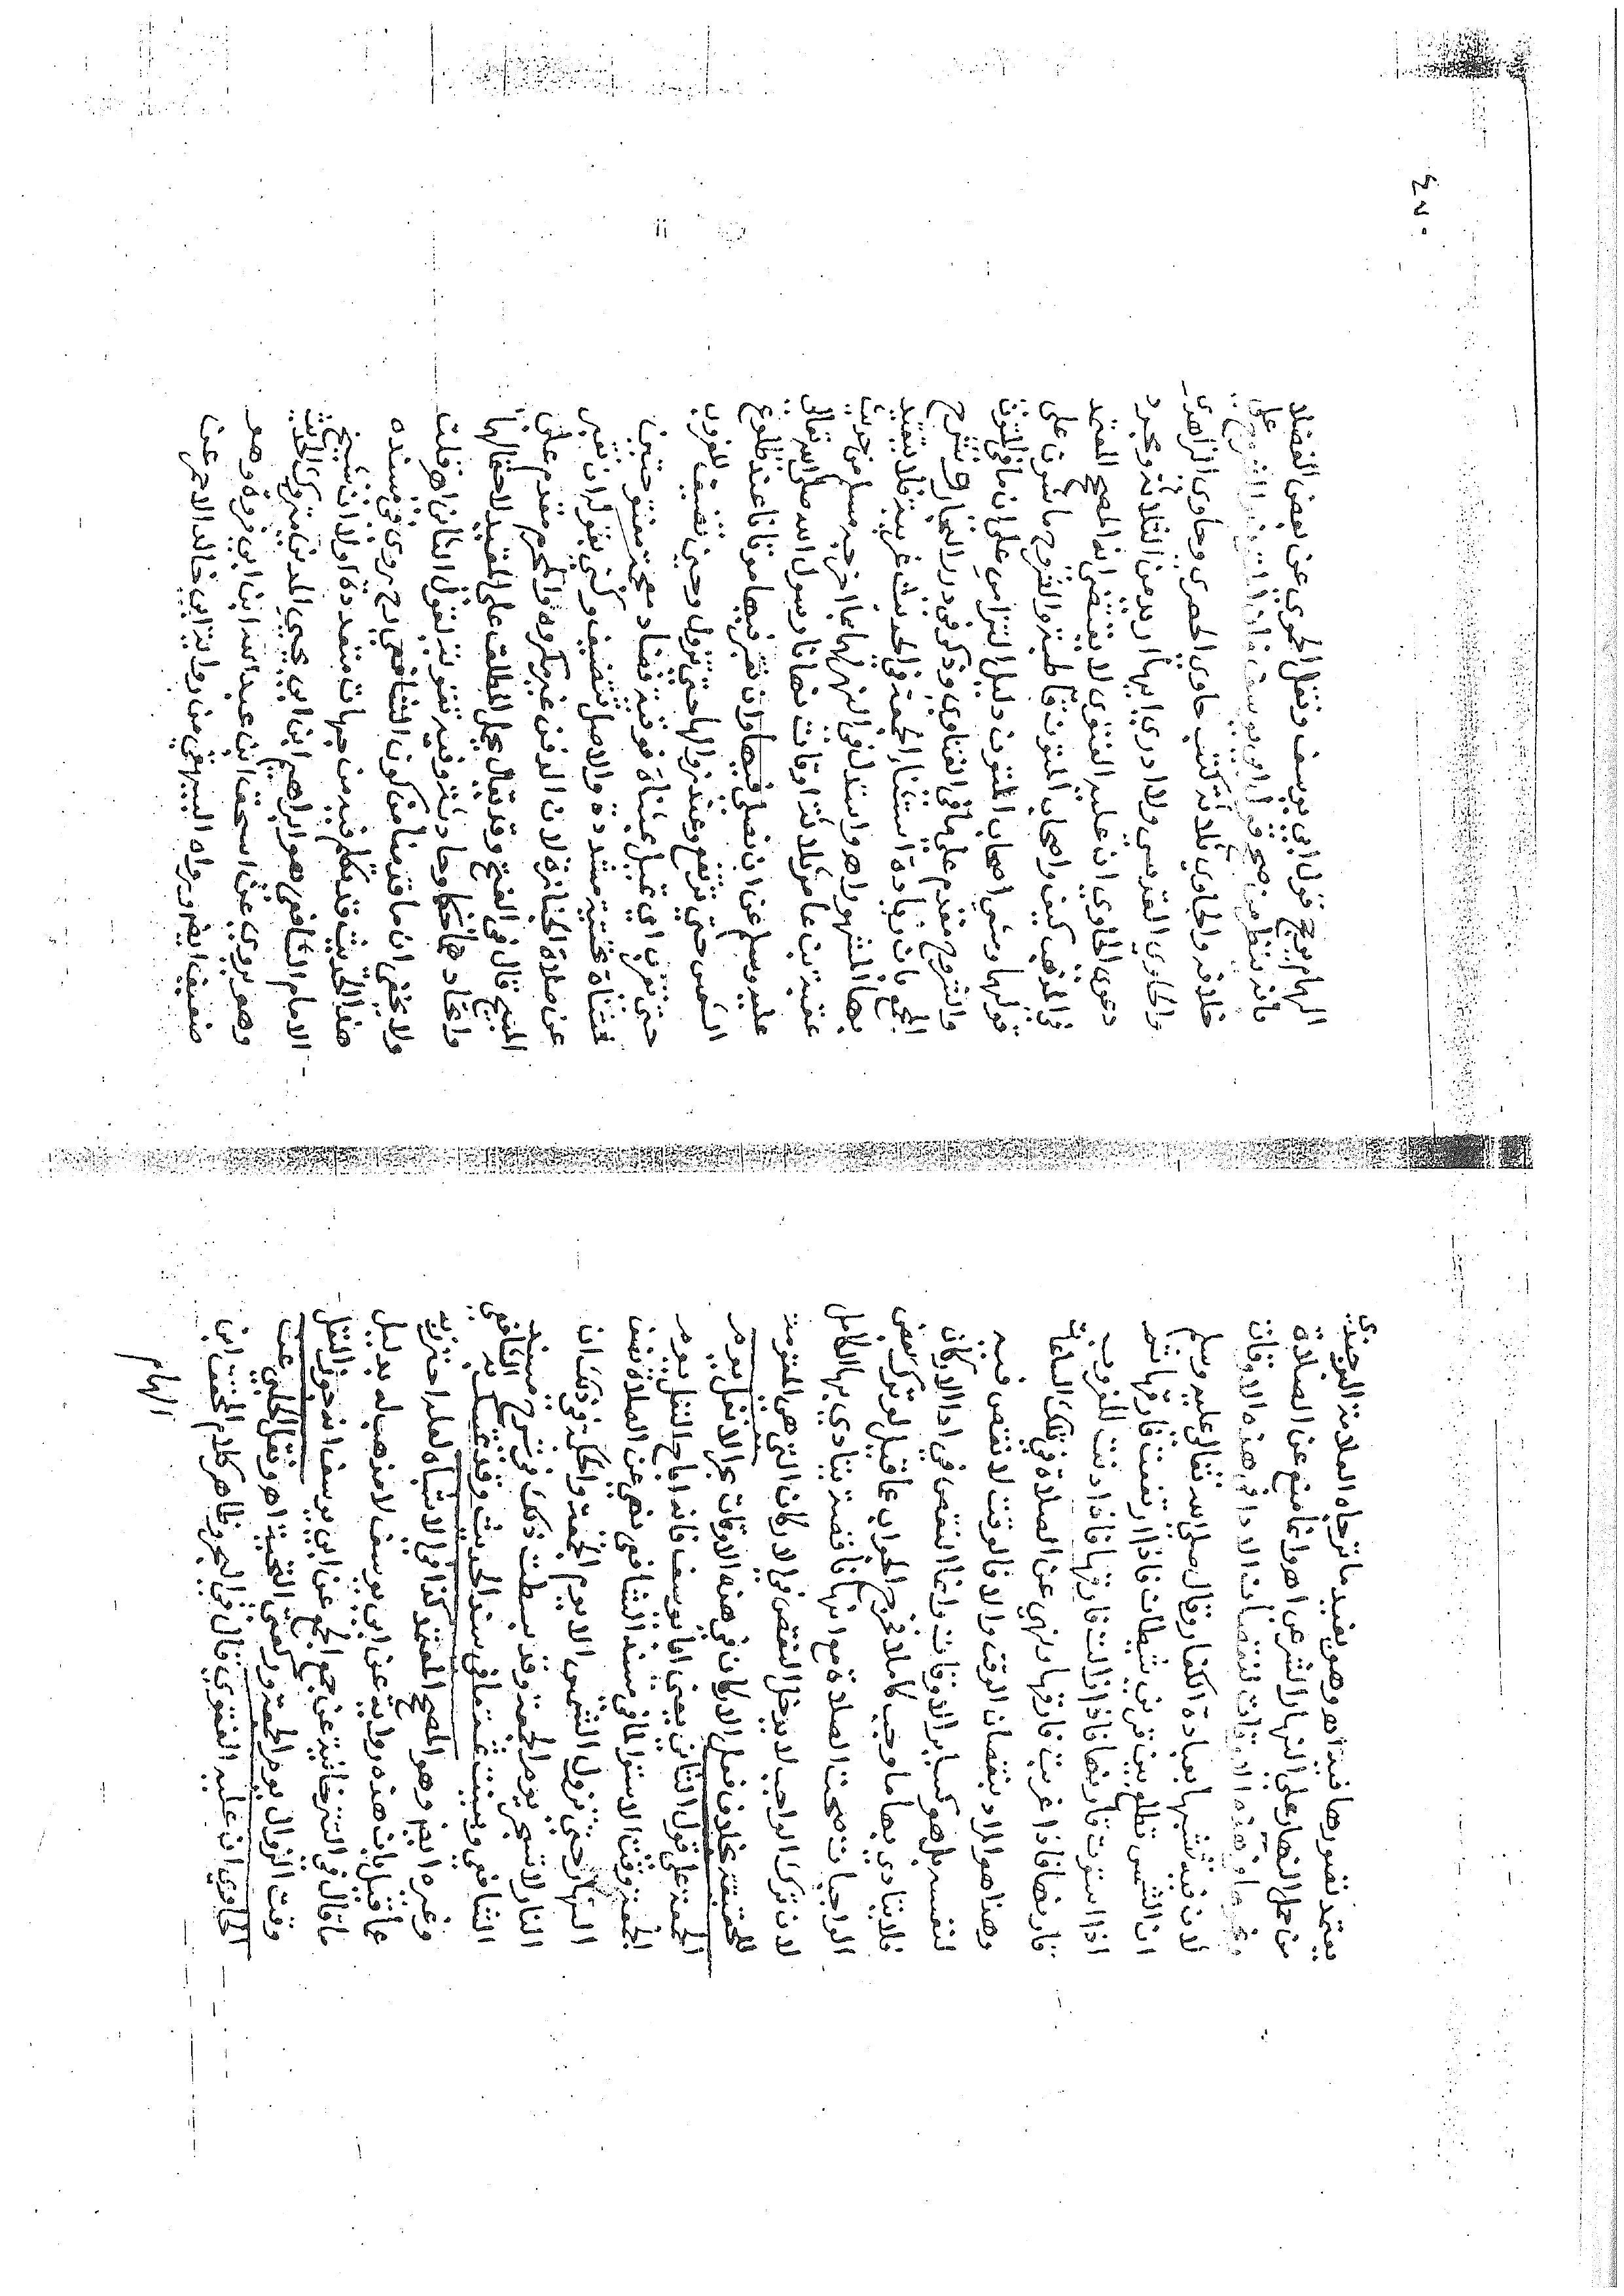 يعتمد تصورها فيه اهو وهو يفيد ما ترجاه العلامة البرجندي
من حمل النهار على النهار الشرعي اهو وانما منع عن الصلاة
في هذه الاوقات لنقصان الاداء في هذه الاوقات
لان فيه تشبها بعبادة الكفار وقال صلى الله تعالى عليه وسلم
ان الشمس تطلع بين قرني شيطان فاذا ارتفعت فارقها ثم
اذا استوت قارنها فاذا زالت فارقها فاذا دنت للغروب
قارنها فاذا غربت فارقها ونهى عن الصلاة في تلك الساعات
وهذا هو المراد بنقصان الوقت والا فالوقت لا نقص فيه
لنفسه بل هو كسائر الاوقات وانما النقص في اداء الاركان
فلا يتادى بها ما وجب كاملا فخرج الجواب عما قيل لو ترك بعض
الواجبات صحت الصلاة مع انها ناقصة يتادى بها الكامل
لان ترك الواجب لا يدخل النقص في الاركان التي هي المقومة
للحقيقة بخلاف فعل الاركان في هذه الاوقات بحر الا نفل يوم
الجمعة على قول الثاني يعني ابا يوسف فانه اباح التنفل يوم
الجمعة وقت الاستواء لما في مسند الشافعي نهى عن الصلاة نصف
النهار حتى تزول الشمس الا يوم الجمعة والحكمة في ذلك ان
النار لا تسجر يوم الجمعة وقد بسطت ذلك في شرح مسند
الشافعي وبينت ثمة ما في سند الحديث وقد تمسك به الشافعي
وغيره ايضا وهو المصحح المعتمد كذا في الاشباه لعله احترز به
عما قيل بان هذه رواية عن ابي يوسف لا مذهبا له بدليل
ما قال في التترخانية عن جمع الجمع عن ابي يوسف انه جوز النفل
وقت الزوال يوم الجمعة وركعتي التحية اهو ونقل الحلبي عن
الحاوي ان عليه الفتوى قال في البحر وظاهر كلام المحقق ابن
الهمام
٤٧٠
الهمام يرجح قول ابي يوسف ونقل الحموي عن بعض الفضلاء
بانه ينظر من صحح قول ابي يوسف فان المتون والشروح على
خلافه والحاوي ثلاثة كتب حاوي الحصيري وحاوي الزاهدي
والحاوي القدسي ولا ادري ايها اريد من الثلاثة ومجرد
دعوى الحاوي ان عليه الفتوى لا يقتضي انه المصحح المعتمد
في المذهب كيف واصحاب المتون قاطبة والشروح ماشون على
قولهما ومشي اصحاب المتون دليل التزامي على ان ما في المتون
والشروح مقدم على ما في الفتاوى وذكر في درر البحار في شرح
المجمع بان زيادة استثناء الجمعة في الحديث غريبة فلا يقيد
بها المشهور اهو واستدل في النهر لهما بما اخرجه مسلم من حديث
عقبة بن عامر ثلاثة اوقات نهانا رسول الله صلى الله تعالى
عليه وسلم عن ان نصلي فيها وان نقبر فيها موتانا عند طلوع
الشمس حتى ترتفع وعند زوالها حتى تزول وحين تضيف للغروب
حتى تغرب اي تميل بمثناة فوقية فضاد معجمة مفتوحتين
فمثناة تحتية مشددة والاصل تتضيف وكنى بقوله ان نقبر
عن صلاة الجنازة لان الدفن غير مكروه والمحرم مقدم على
المبيح قال في الفتح وقد يقال يحمل المطلق على المقيد لاتحادهما
واتحادهما حكما وحادثة وفيه تقوية لقول الثاني اهو قلت
ولا يخفى ان ما قدمنا من كون الشافعي رح روى في مسنده
هذا الحديث قد تكلم فيه من جهات متعددة اولا ان شيخ
الامام الشافعي هو ابراهيم ابن ابي يحيى المدني متروك الحديث
وهو يروي عن اسحق ابن عبد الله ابن ابي فروة وهو
ضعيف ايضا ورواه البيهقي من رواية ابي خالد الاحمر عن